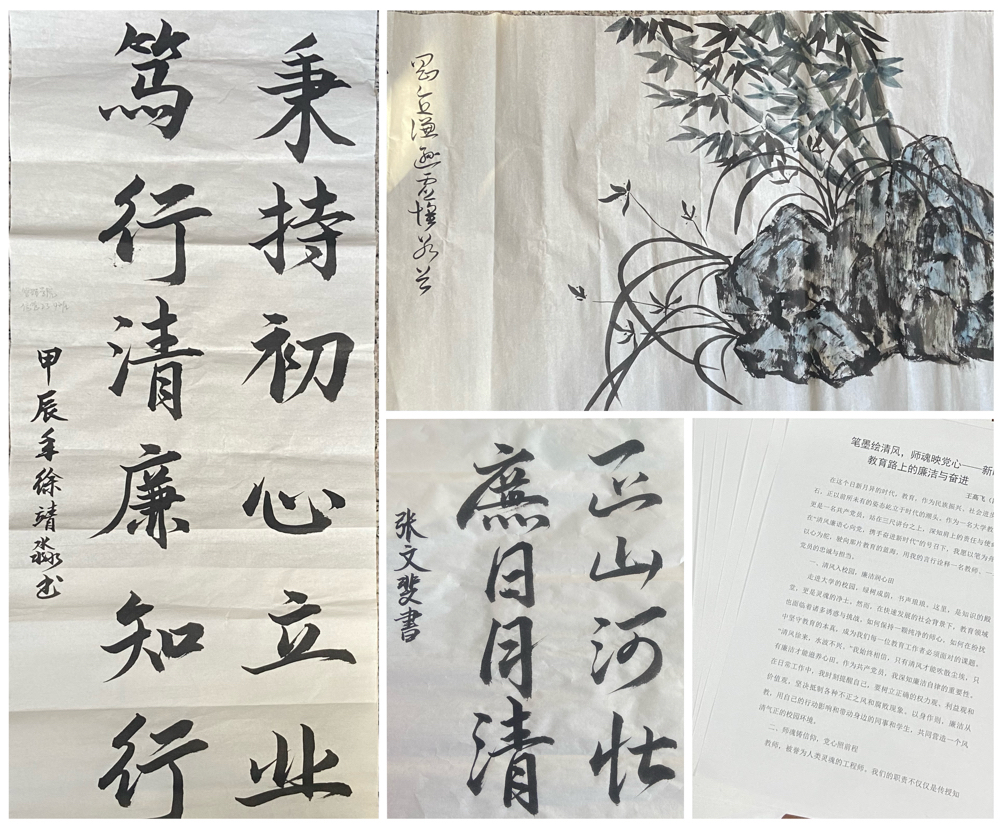 秉持初心立业
笃行清廉知行
甲辰年徐靖淼书
谦逊虚怀若谷
正山河壮
廉日月清
张文斐書
笔墨绘清风，师魂映党心——新
教育路上的廉洁与奋进
王高飞
在这个日新月异的时代，教育，作为民族振兴、社会进
石，正以前所未有的姿态屹立于时代的潮头。作为一名大学教
更是一名共产党员，站在三尺讲台之上，深知肩上的责任与使
在“清风廉语心向党，携手奋进新时代”的号召下，我愿以笔为
以心为舵，驶向那片教育的蓝海，用我的言行诠释一名教师、一
党员的忠诚与担当。
一、清风入校园，廉洁润心田
走进大学的校园，绿树成荫，书声琅琅。这里，是知识的殿
堂，更是灵魂的净土。然而，在快速发展的社会背景下，教育领域
也面临着诸多诱惑与挑战。如何保持一颗纯净的师心，如何在纷扰
中坚守教育的本真，成为我们每一位教育工作者必须面对的课题。
“清风徐来，水波不兴。”我始终相信，只有清风才能吹散尘埃，只
有廉洁才能滋养心田。作为共产党员，我深知廉洁自律的重要性。
在日常工作中，我时刻提醒自己，要树立正确的权力观、利益观和
价值观，坚决抵制各种不正之风和腐败现象。以身作则，廉洁从
教，用自己的行动影响和带动身边的同事和学生，共同营造一个风
清气正的校园环境。
二、师魂铸信仰，党心照前程
教师，被誉为人类灵魂的工程师，我们的职责不仅仅是传授知